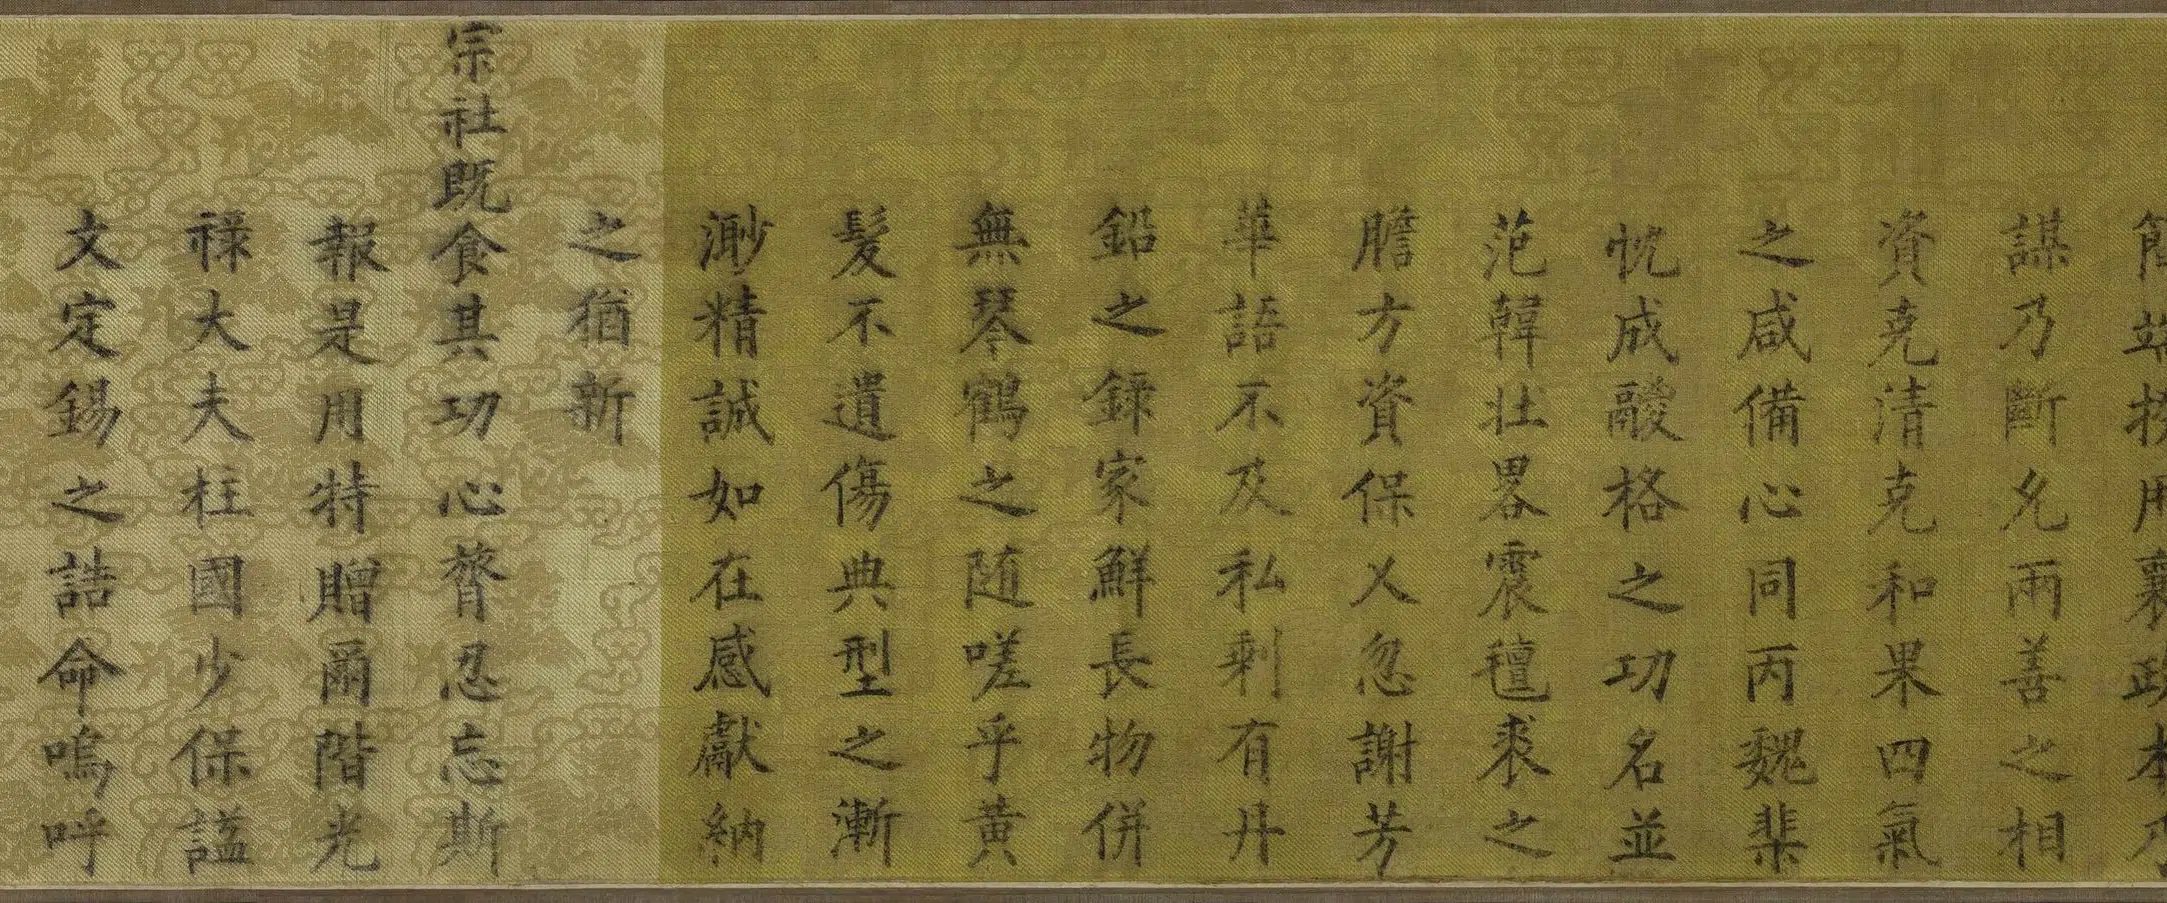 謀乃斷允兩善之相
資克清克和果四氣
之咸備心同丙魏棐
忱成醊格之功名並
范韓壯畧震氊裘之
膽方資保乂忽謝芳
華語不及私剩有丹
鉛之錄家鮮長物併
無琴鶴之随嗟乎黃
髮不遺傷典型之漸
渺精誠如在感獻納
之猶新
宗社既食其功心膂忍忘斯
報是用特贈爾階光
祿大夫柱國少保謚
文定錫之誥命嗚呼